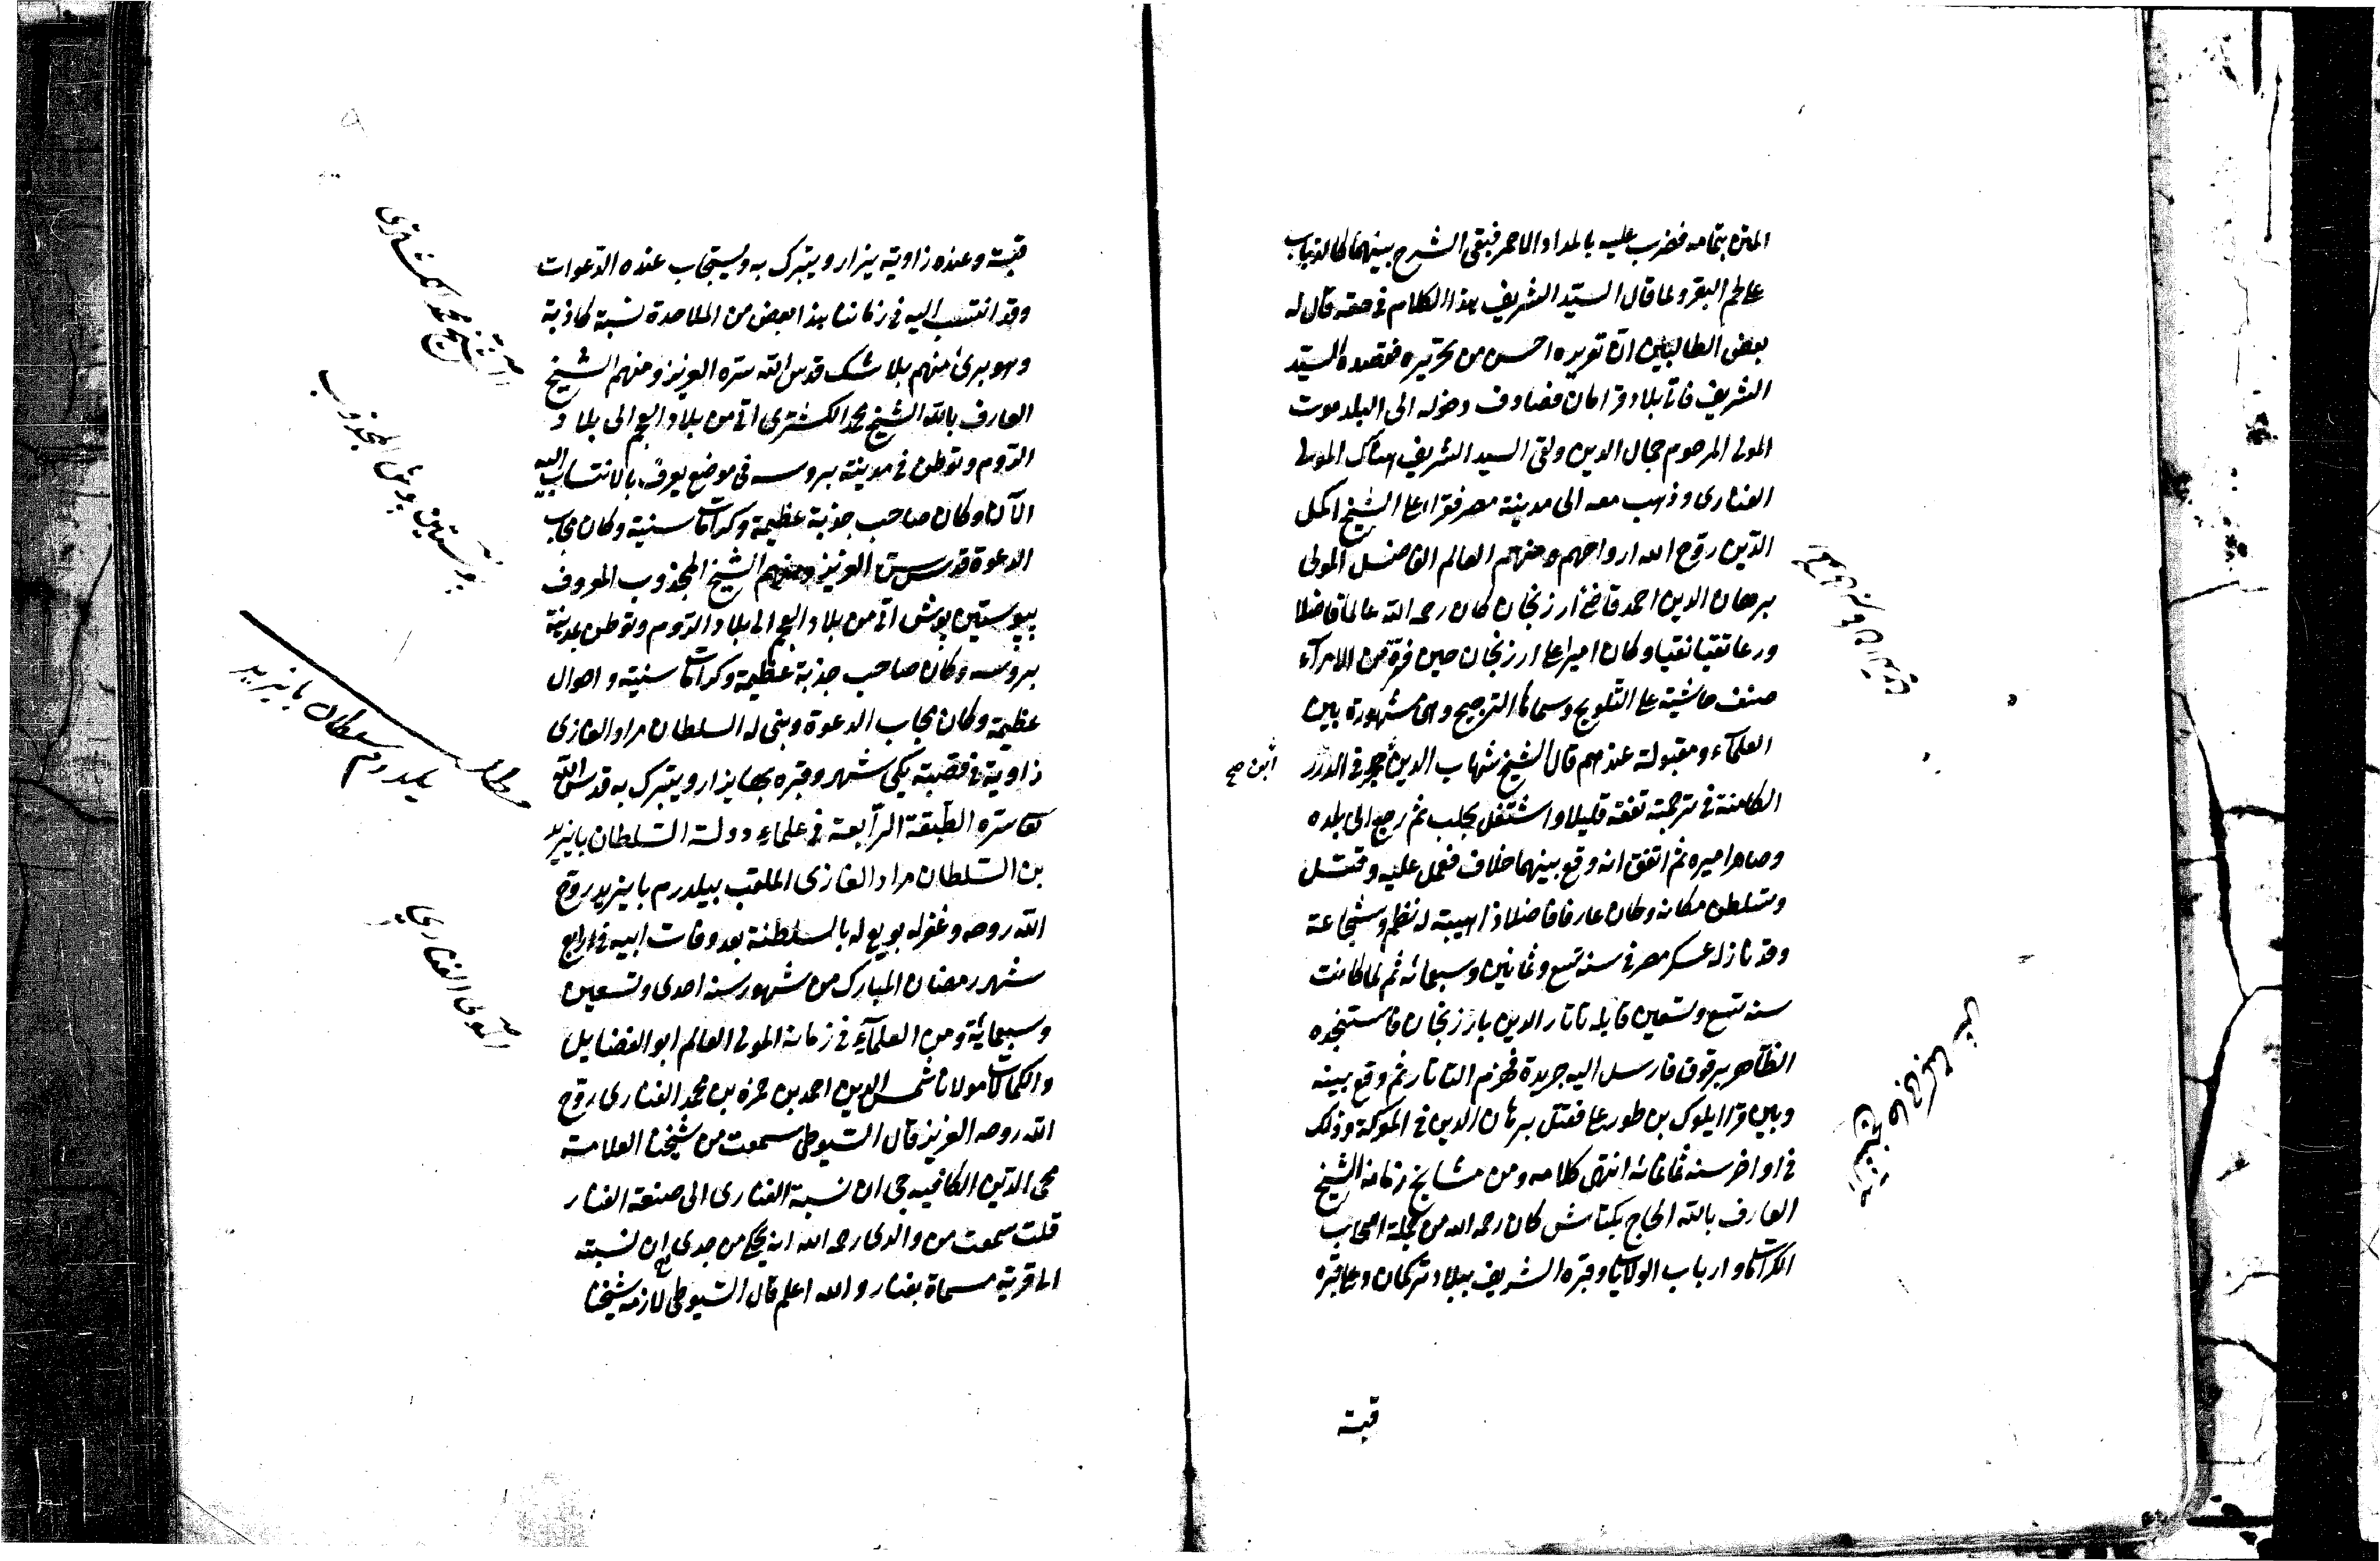 المتن بتمامه فضرب عليه بالمداد الاحمر فبقى الشرح بينهما كالذباب
على لحم البقر ولما قال السيد الشريف هذا الكلام فى حقه قال له
بعض الطالبين ان تقريره احسن من تحريره فقصده السيد
الشريف فاتى بلاد قرامان فصادف دخوله الى البلد موت
المولى المرحوم جمال الدين ولقى السيد الشريف هناك المولى
الفنارى وذهب معه الى مدينة مصر فقرأ على الشيخ اكمل
الدين روّح الله ارواحهم ومنهم العالم الفاضل المولى
برهان الدين احمد قاضى ارزنجان كان رحمه الله عالما فاضلا
ورعا تقيا نقيا وكان اميرا على ارزنجان حين فرقة من الامراء
صنف حاشية على التلويح وسماها الترجيح وهى مشهورة بين
العلماء ومقبولة عندهم قال الشيخ شهاب الدين حجر فى الدرر
ابن صح
الكامنة فى ترجمته تفقه قليلا واشتغل بحلب ثم رجع الى بلده
وصاهر اميره ثم اتفق انه وقع بينهما خلاف فعمل عليه وقتل
وتسلطن مكانه وكان عارفا فاضلا ذا هيبة له نظم وشجاعة
وقد نازله عسكر مصر فى سنة تسع وثمانين وسبعمائة ثم لما كانت
سنة تسع وتسعين قابله تاتار الدين بارزنجان فاستنجده
الظاهر برقوق فارسل اليه جريدة فهزم التاتار ثم وقع بينه
وبين قرا ايلوك بن طور على فقتل برهان الدين فى المعركة وذلك
فى اواخر سنة ثمانمائة انتهى كلامه ومن مشايخ زمانه الشيخ
العارف بالله الحاج بكتاش كان رحمه الله من جملة اصحاب
الكرامات وارباب الولايات وقبره الشريف ببلاد تركمان وعلى قبره
قبة
قبة وعنده زاوية يزار ويتبرك به ويستجاب عنده الدعوات
وقد انتسب اليه فى زماننا هذا بعض من الملاحدة نسبة كاذبة
وهو برئ منهم بلا شك قدس الله سره العزيز ومنهم الشيخ
العارف بالله الشيخ محمد الكشترى اتى من بلاد العجم الى بلاد
الروم وتوطن فى مدينة بروسه فى موضع يعرف بالانتساب اليه
الآن وكان صاحب جذبة عظيمة وكرامات سنية وكان مجاب
الدعوة قدس سره العزيز ومنهم الشيخ المجذوب المعروف
ببوستين پوش اتى من بلاد العجم الى بلاد الروم وتوطن بمدينة
بروسه وكان صاحب جذبة عظيمة وكرامات سنية واحوال
عظيمة وكان مجاب الدعوة وبنى له السلطان مراد الغازى
زاوية فى قصبة يكى شهر وقبره بها يزار ويتبرك به قدس الله
تعالى سره الطبقة الرابعة فى علماء دولة السلطان بايزيد
بن السلطان مراد الغازى الملقب بيلدرم بايزيد روّح
الله روحه وغفر له بويع له بالسلطنة بعد وفات ابيه فى رابع
شهر رمضان المبارك من شهور سنة احدى وتسعين
وسبعمائة ومن العلماء فى زمانه المولى العالم ابو الفضايل
والكمالات مولانا شمس الدين احمد بن حمزه بن محمد الفنارى روّح
الله روحه العزيز قال السيوطى سمعت من شيخنا العلامة
محى الدين الكافيه جى ان نسبة الفنارى الى صنعة الفنار
قلت سمعت من والدى رحمه الله انه يحكى من جدى ان نسبته
الى قرية مسماة بفنار والله اعلم قال السيوطى لازمه شيخنا
الشيخ محمد الكشترى
پوستين پوش المجذوب
يلدرم سلطان بايزيد
المولى الفنارى